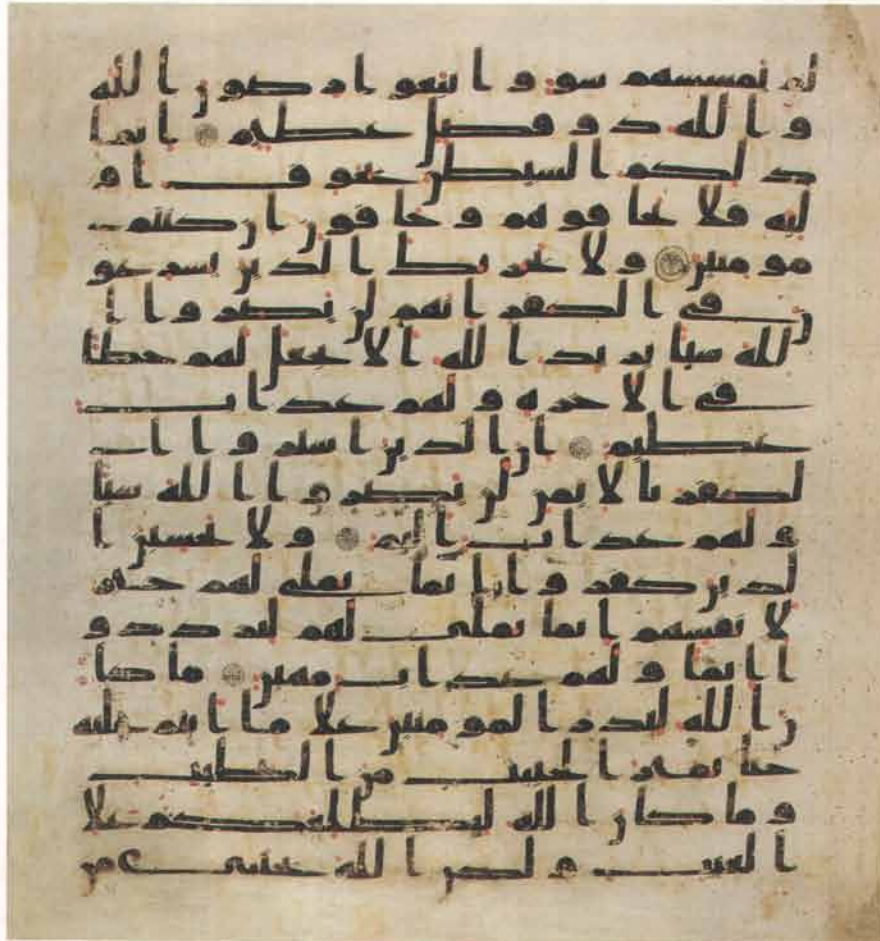 لم يمسسهم سو واتبعوا رضون الله
والله ذو فضل عظيم انما
ذلكم الشيطن يخوف او
ليه فلا تخافوهم وخافون ان كنتم
مومنين ولا يحزنك الذين يسرعو
ن في الكفر انهم لن يضروا ا
لله شيا يريد الله الا يجعل لهم حظا
في الاخره ولهم عذاب
عظيم ان الذين اشتروا ا
لكفر بالايمن لن يضروا الله شيا
ولهم عذاب اليم ولا يحسبن ا
لذين كفروا انما نملي لهم خير
لانفسهم انما نملي لهم ليزددو
ا اثما ولهم عذاب مهين ما كا
ن الله ليذر المومنين علا ما انتم عليه
حتا يميز الخبيث من الطيب
وما كان الله ليطلعكم علا
الغيب ولكن الله يجتبي من